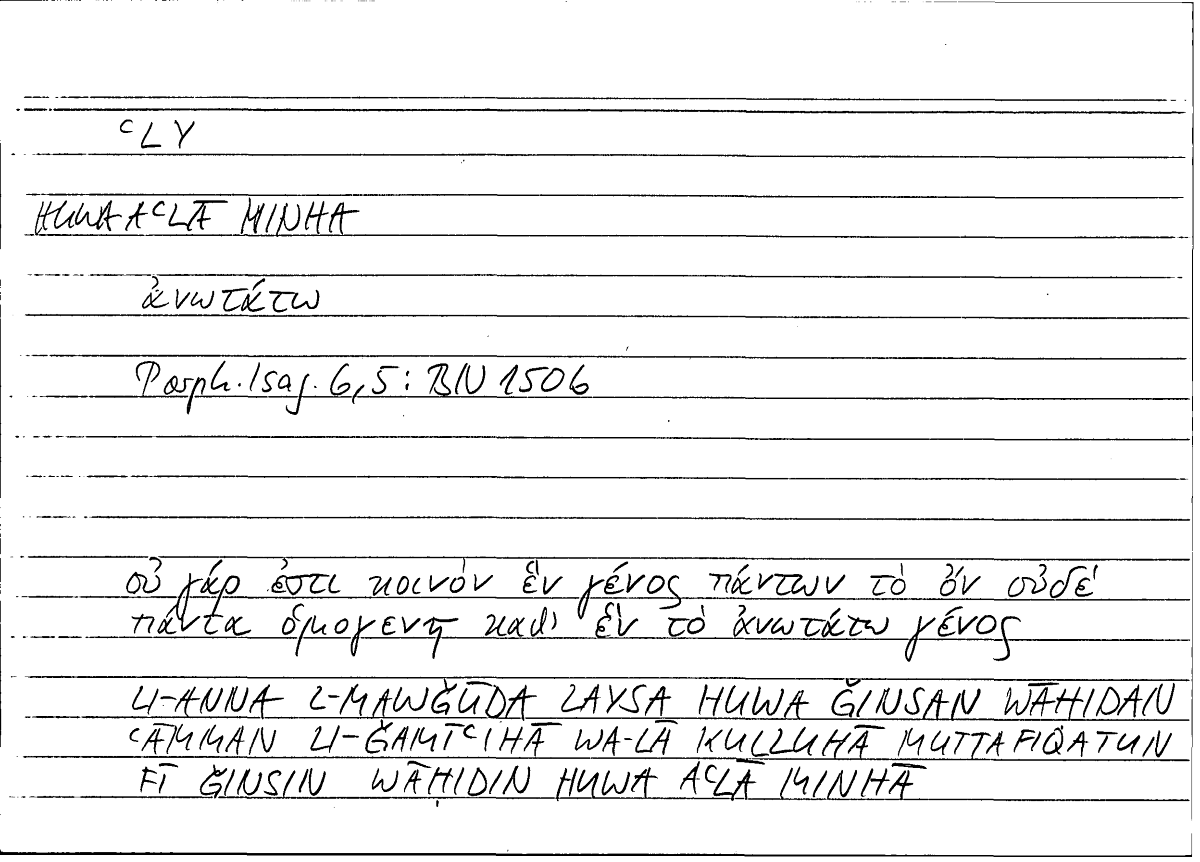 ᶜLY
HUWA AᶜLĀ MINHA
ἀνωτάτω
Porph. Isag. 6,5: BN 150b
οὐ γάρ ἐστι κοινὸν ἓν γένος πάντων τὸ ὂν οὐδὲ
πάντα ὁμογενῆ καθ' ἓν τὸ ἀνωτάτω γένος
LI-ANNA L-MAWǦŪDA LAYSA HUWA ǦINSAN WĀHIDAN
ᶜĀMMAN LI-ǦAMĪᶜIHĀ WA-LĀ KULLUHĀ MUTTAFIQATUN
FĪ ǦINSIN WĀḤIDIN HUWA AᶜLĀ MINHĀ